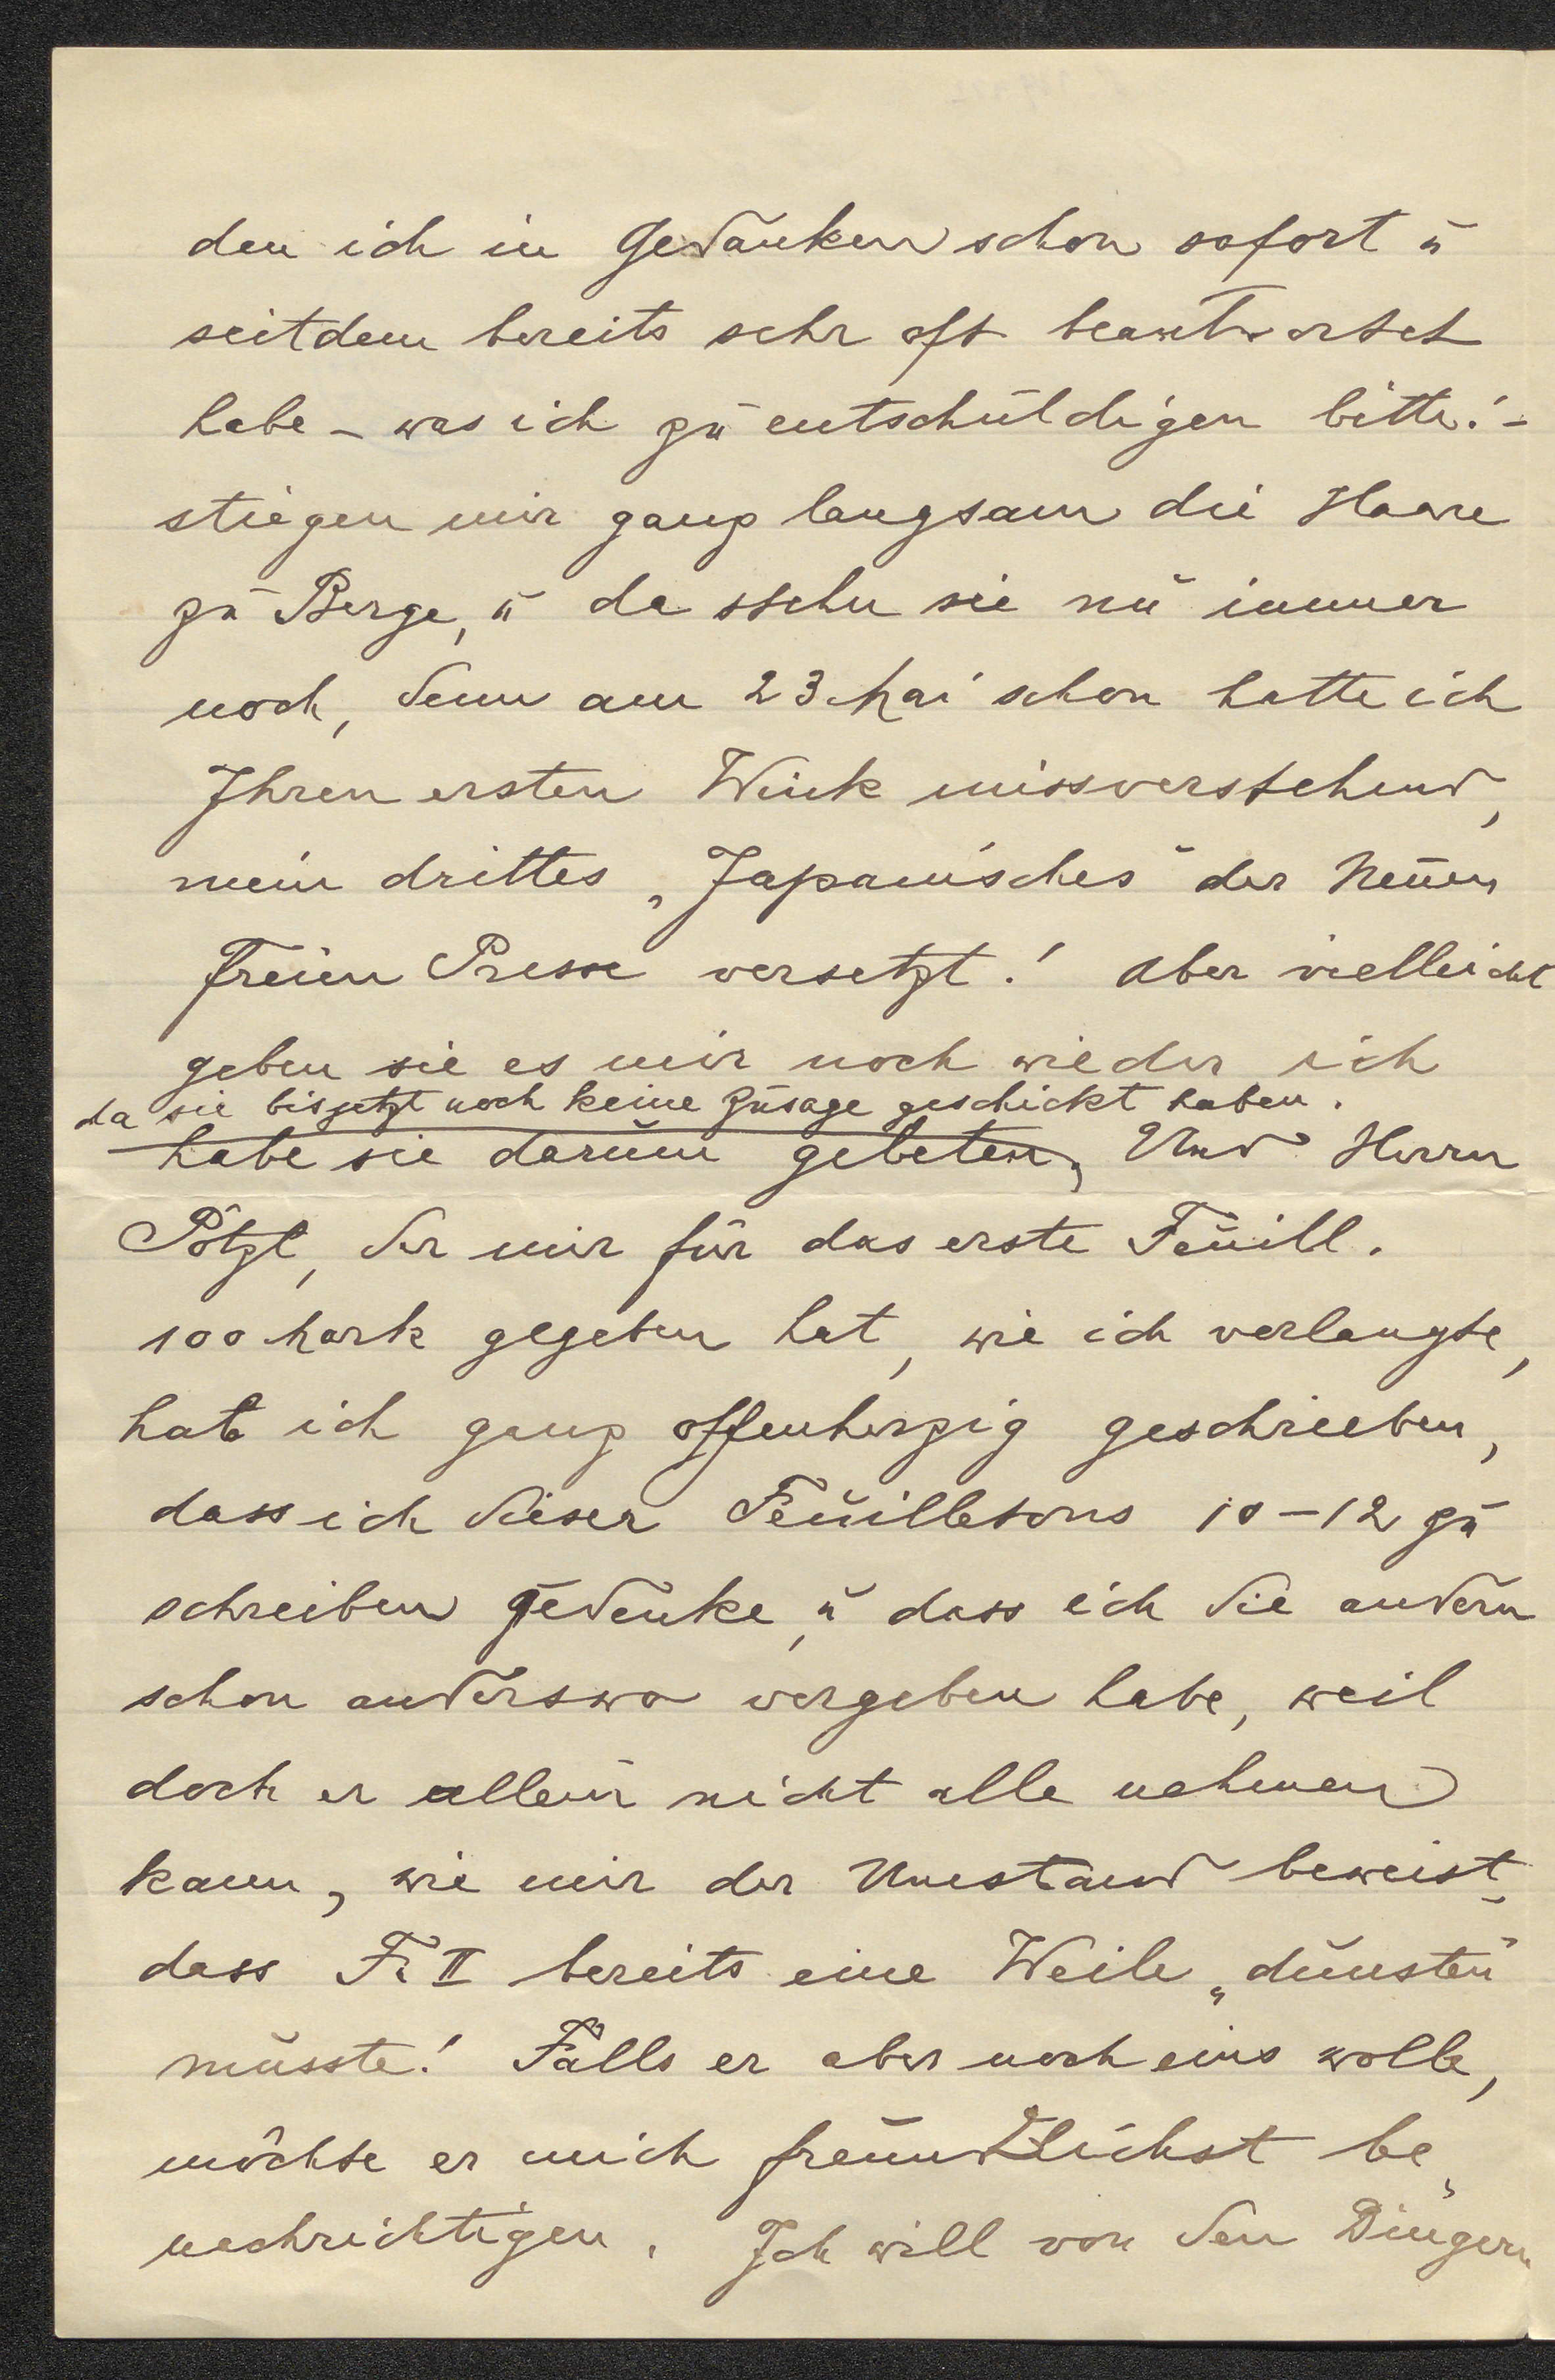 den ich in Gedanken schon sofort u
seitdem bereits sehr oft beantwortet
habe – was ich zu entschuldigen bitte! –
stiegen mir ganz langsam die Haare
zu Berge, u da stehn sie nu immer
noch, denn am 23 Mai schon hatte ich
Ihren ersten Wink missverstehend,
mein drittes „Japanisches" der Neuen
Freien Presse versetzt! Aber vielleicht
geben sie es mir noch wieder ich
da sie bisjetzt noch keine Zusage geschickt haben.
habe sie darum gebeten, Und Herrn
Pötzl, der mir für das erste Feuill.
100 Mark gegeben hat, wie ich verlangte,
hab ich ganz offenherzig geschrieben,
dass ich dieser Feuilletons 10–12 zu
schreiben gedenke, u dass ich die andern
schon anderswo vergeben habe, weil
doch er allein nicht alle nehmen
kann, wie mir der Umstand beweist,
dass F. II bereits eine Weile „dünsten"
müsste! Falls er aber noch eins wolle,
möchte er mich freundlichst be„
nachrichtigen. Ich will von den Dingern